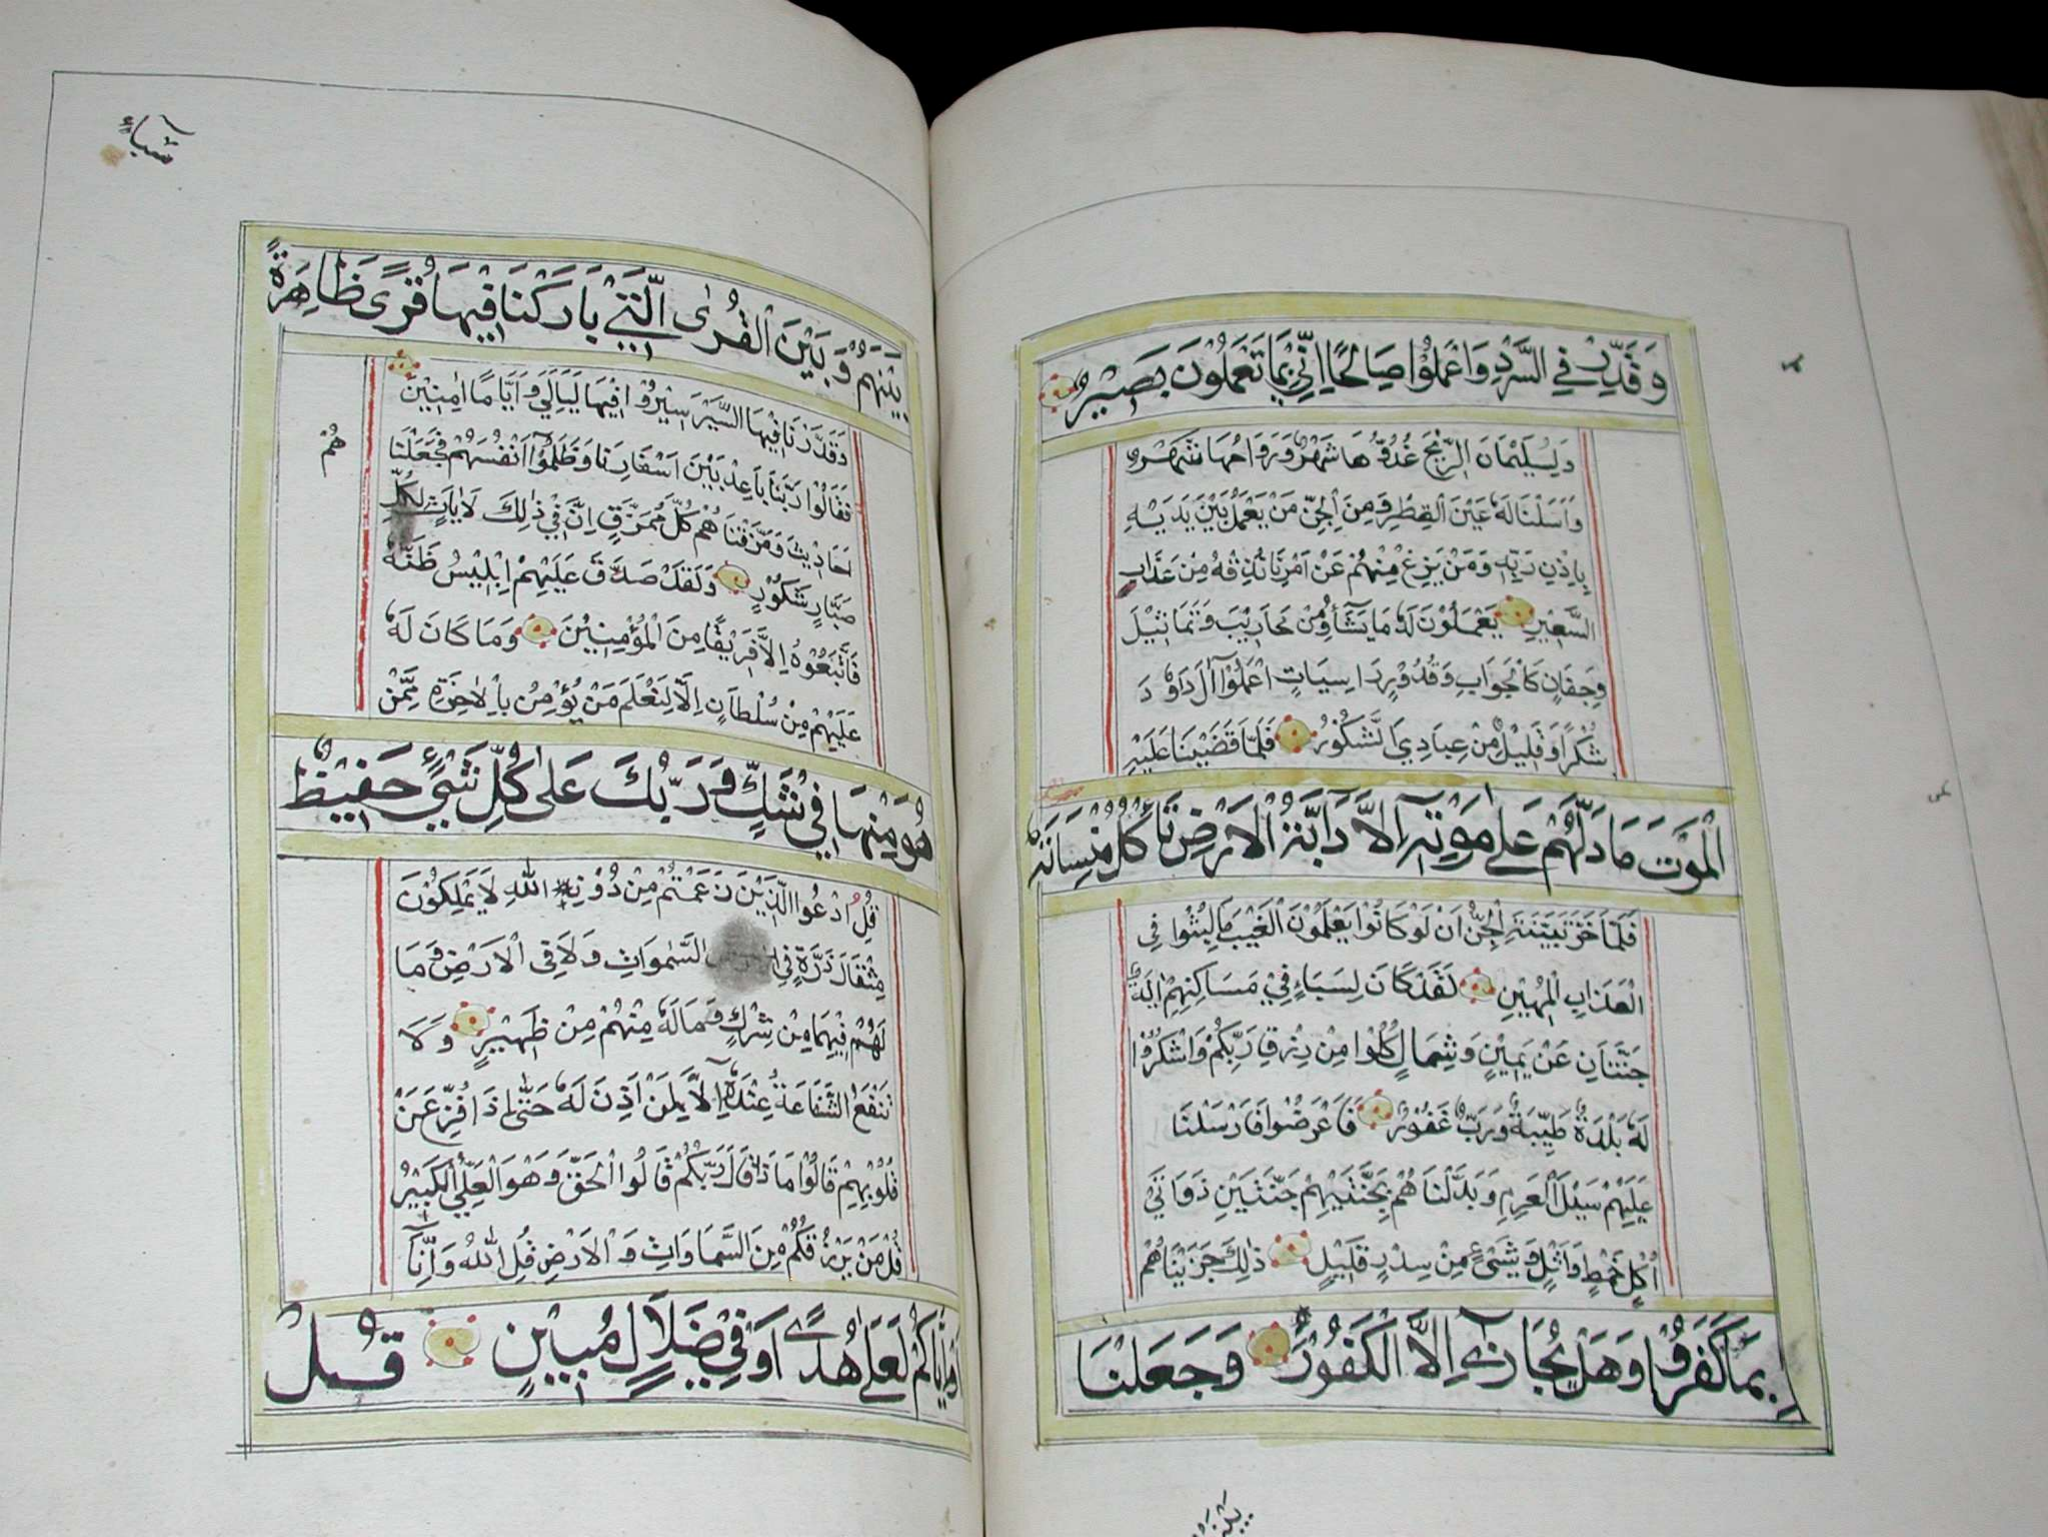 وَقَدِّرْ فِي السَّرْدِ وَاعْمَلُوْا صَالِحًا اِنِّيْ بِمَا تَعْمَلُوْنَ بَصِيْرٌ
وَلِسُلَيْمَانَ الرِّيْحَ غُدُوُّهَا شَهْرٌ وَرَوَاحُهَا شَهْرٌ
وَاَسَلْنَا لَهُ عَيْنَ الْقِطْرِ وَمِنَ الْجِنِّ مَنْ يَعْمَلُ بَيْنَ يَدَيْهِ
بِاِذْنِ رَبِّهِ وَمَنْ يَزِغْ مِنْهُمْ عَنْ اَمْرِنَا نُذِقْهُ مِنْ عَذَابِ
السَّعِيْرِ يَعْمَلُوْنَ لَهُ مَا يَشَآؤُ مِنْ مَحَارِيْبَ وَتَمَاثِيْلَ
وَجِفَانٍ كَالْجَوَابِ وَقُدُوْرٍ رَاسِيَاتٍ اعْمَلُوْٓا اٰلَ دَاوٗدَ
شُكْرًا وَقَلِيْلٌ مِنْ عِبَادِيَ الشَّكُوْرُ فَلَمَّا قَضَيْنَا عَلَيْهِ
الْمَوْتَ مَا دَلَّهُمْ عَلٰى مَوْتِهٖٓ اِلَّا دَآبَّةُ الْاَرْضِ تَأْكُلُ مِنْسَاَتَهُ
فَلَمَّا خَرَّ تَبَيَّنَتِ الْجِنُّ اَنْ لَوْ كَانُوْا يَعْلَمُوْنَ الْغَيْبَ مَا لَبِثُوْا فِي
الْعَذَابِ الْمُهِيْنِ لَقَدْ كَانَ لِسَبَاءٍ فِيْ مَسَاكِنِهِمْ اٰيَةٌ
جَنَّتَانِ عَنْ يَمِيْنٍ وَشِمَالٍ كُلُوْا مِنْ رِزْقِ رَبِّكُمْ وَاشْكُرُوْا
لَهُ بَلْدَةٌ طَيِّبَةٌ وَرَبٌّ غَفُوْرٌ فَاَعْرَضُوْا فَاَرْسَلْنَا
عَلَيْهِمْ سَيْلَ الْعَرِمِ وَبَدَّلْنَاهُمْ بِجَنَّتَيْهِمْ جَنَّتَيْنِ ذَوَاتَيْ
اُكُلٍ خَمْطٍ وَاَثْلٍ وَشَيْءٍ مِنْ سِدْرٍ قَلِيْلٍ ذٰلِكَ جَزَيْنَاهُمْ
بِمَا كَفَرُوْا وَهَلْ نُجَازِيْٓ اِلَّا الْكَفُوْرَ وَجَعَلْنَا
سَبَاءٍ
بَيْنَهُمْ وَبَيْنَ الْقُرٰى الَّتِيْ بَارَكْنَا فِيْهَا قُرًى ظَاهِرَةً
وَقَدَّرْنَا فِيْهَا السَّيْرَ سِيْرُوْا فِيْهَا لَيَالِيَ وَاَيَّامًا اٰمِنِيْنَ
فَقَالُوْا رَبَّنَا بَاعِدْ بَيْنَ اَسْفَارِنَا وَظَلَمُوْٓا اَنْفُسَهُمْ فَجَعَلْنَا
هُمْ
اَحَادِيْثَ وَمَزَّقْنَاهُمْ كُلَّ مُمَزَّقٍ اِنَّ فِيْ ذٰلِكَ لَاٰيَاتٍ لِكُلِّ
صَبَّارٍ شَكُوْرٍ وَلَقَدْ صَدَّقَ عَلَيْهِمْ اِبْلِيْسُ ظَنَّهُ
فَاتَّبَعُوْهُ اِلَّا فَرِيْقًا مِنَ الْمُؤْمِنِيْنَ وَمَا كَانَ لَهُ
عَلَيْهِمْ مِنْ سُلْطَانٍ اِلَّا لِنَعْلَمَ مَنْ يُؤْمِنُ بِالْاٰخِرَةِ مِمَّنْ
هُوَ مِنْهَا فِيْ شَكٍّ وَرَبُّكَ عَلٰى كُلِّ شَيْءٍ حَفِيْظٌ
قُلِ ادْعُوا الَّذِيْنَ زَعَمْتُمْ مِنْ دُوْنِ اللّٰهِ لَا يَمْلِكُوْنَ
مِثْقَالَ ذَرَّةٍ فِي السَّمٰوَاتِ وَلَا فِي الْاَرْضِ وَمَا
لَهُمْ فِيْهِمَا مِنْ شِرْكٍ وَمَا لَهُ مِنْهُمْ مِنْ ظَهِيْرٍ وَلَا
تَنْفَعُ الشَّفَاعَةُ عِنْدَهُٓ اِلَّا لِمَنْ اَذِنَ لَهُ حَتّٰى اِذَا فُزِّعَ عَنْ
قُلُوْبِهِمْ قَالُوْا مَاذَا قَالَ رَبُّكُمْ قَالُوا الْحَقَّ وَهُوَ الْعَلِيُّ الْكَبِيْرُ
قُلْ مَنْ يَرْزُقُكُمْ مِنَ السَّمَاوَاتِ وَالْاَرْضِ قُلِ اللّٰهُ وَاِنَّآ
اَوْ اِيَّاكُمْ لَعَلٰى هُدًى اَوْ فِيْ ضَلَالٍ مُبِيْنٍ قُلْ